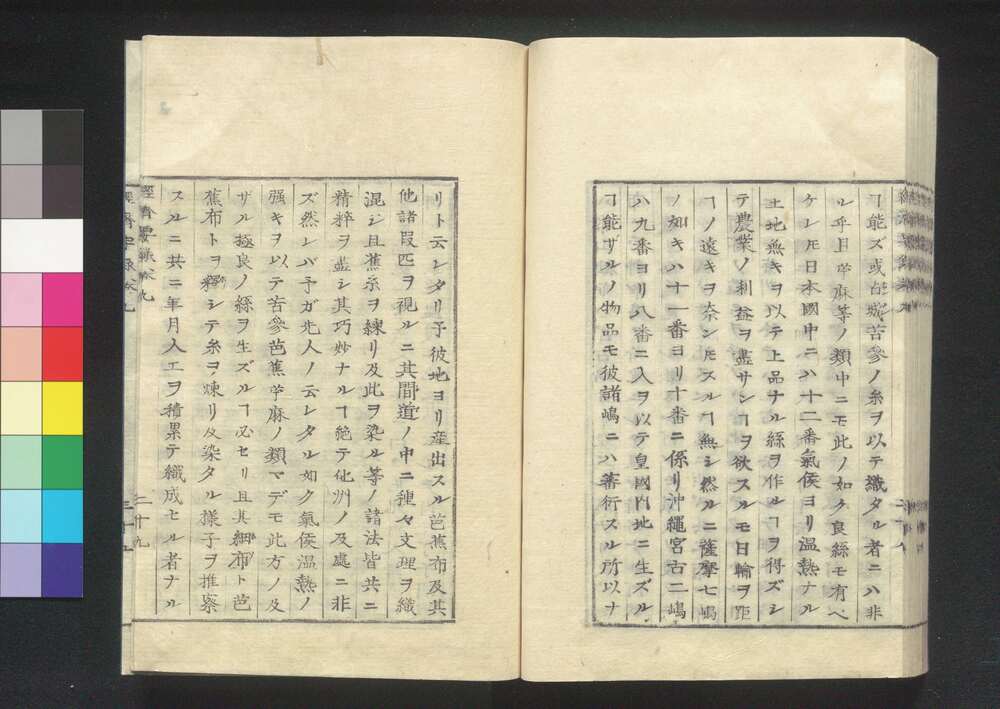 ヿ能ズ或ハ苦參ノ糸ヲ以テ織タル者ニハ非
ル乎且苧麻等ノ類中ニモ此ノ如ク良絲モ有ベ
ケレ𪜈日本國中ニハ十二番氣候ヨリ温熱ナル
土地無キヲ以テ上品ナル絲ヲ作ルヿヲ得ズシ
テ農業ノ利益ヲ盡サンヿヲ欲スルモ日輪ヲ距
ヿノ遠キヲ奈ン𪜈スルヿ無シ然ルニ薩摩七嶋
ノ如キハ十一番ヨリ十番ニ係リ沖繩宮古二嶋
ハ九番ヨリ八番ニ入ヲ以テ皇國内地ニ生ズル
ヿ能ザルノ物品モ彼諸嶋ニハ蕃衍スル所以ナ
リト云ンタリ予彼地ヨリ産出スル芭蕉布及其
他諸段匹ヲ視ルニ其間道ノ中ニ種々文理ヲ織
混シ且蕉糸ヲ練リ及此ヲ染ル等ノ諸法皆共ニ
精粹ヲ盡シ其巧妙ナルヿ絶テ他洲ノ及處ニ非
ズ然レバ予ガ先人ノ云レタル如ク氣候温熱ノ
强キヲ以テ苦參芭蕉苧麻ノ類マデモ此方ノ及
ザル極良ノ絲ヲ生ズルヿ必セリ且其細布ト芭
蕉布トヲ釋シテ糸ヲ煉リ及染タル樣子ヲ推察
スルニ共ニ年月人工ヲ積累テ織成セル者ナル
經濟要錄卷九
二十九